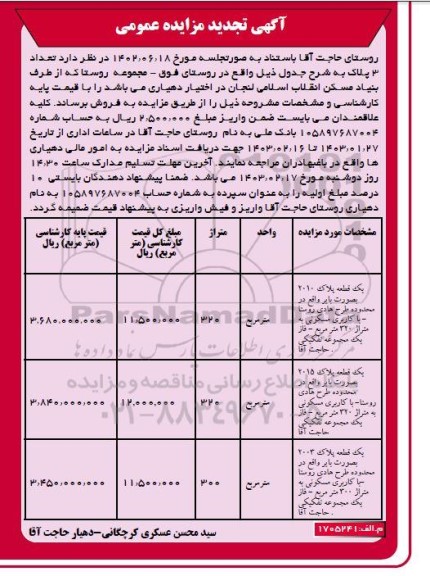 آگهی تجدید مزایده عمومی
روستای حاجت آقا باستناد به صورتجلسه مورخ ۱۴۰۲،۰۶،۱۸ در نظر دارد تعداد
۳ پلاک به شرح جدول ذیل واقع در روستای فوق - مجموعه روستا که از طرف
بنیاد مسکن انقلاب اسلامی لنجان در اختیار دهیاری می باشد را با قیمت پایه
کارشناسی و مشخصات مشروحه ذیل را از طریق مزایده به فروش برساند. کلیه
علاقمندان می بایست ضمن واریز مبلغ ۲،۵۰۰،۰۰۰ ریال به حساب شماره
۱۰۵۸۹۷۶۸۷۰۰۴ بانک ملی به نام روستای حاجت آقا در ساعات اداری از تاریخ
۱۴۰۳،۰۱،۲۷ تا ۱۴۰۳،۰۲،۱۶ جهت دریافت اسناد مزایده به امور مالی دهیاری
ها واقع در باغبهادران مراجعه نمایند. آخرین مهلت تسلیم مدارک ساعت ۱۴:۳۰
روز دوشنبه مورخ ۱۴۰۳،۰۲،۱۷ می باشد. ضمنا پیشنهاد دهندگان بایستی ۱۰
درصد مبلغ اولیه را به عنوان سپرده به شماره حساب ۱۰۵۸۹۷۶۸۷۰۰۴ به نام
دهیاری روستای حاجت آقا واریز و فیش واریزی به پیشنهاد قیمت ضمیمه گردد.
مشخصات مورد مزایده واحد متراژ مبلغ کل قیمت کارشناسی (متر مربع) ریال قیمت پایه کارشناسی (متر مربع) ریال
یک قطعه پلاک ۲۰۱۰
بصورت بایر واقع در
محدوده طرح هادی روستا
- با کاربری مسکونی به
متراژ ۳۲۰ متر مربع - فاز
یک مجموعه تفکیکی
حاجت آقا .
مترمربع ۳۲۰ ۱۱،۵۰۰،۰۰۰ ۳،۶۸۰،۰۰۰،۰۰۰
یک قطعه پلاک ۲۰۱۵
بصورت بایر واقع در
محدوده طرح هادی
روستا- با کاربری مسکونی
به متراژ ۳۲۰ متر مربع - فاز
یک مجموعه تفکیکی
حاجت آقا
مترمربع ۳۲۰ ۱۲،۰۰۰،۰۰۰ ۳،۸۴۰،۰۰۰،۰۰۰
یک قطعه پلاک ۲۰۰۳
بصورت بایر واقع در
محدوده طرح هادی روستا
-با کاربری مسکونی به
متراژ ۳۰۰ متر مربع - فاز
یک مجموعه تفکیکی
حاجت آقا .
مترمربع ۳۰۰ ۱۱،۵۰۰،۰۰۰ ۳،۴۵۰،۰۰۰،۰۰۰
ParsNamadData
پایگاه اطلاع رسانی مناقصه و مزایده
۰۲۱-۸۸۳۴۹۶۷۰
م.الف: ۱۷۰۵۲۴۱
سید محسن عسکری کرچگانی-دهیار حاجت آقا